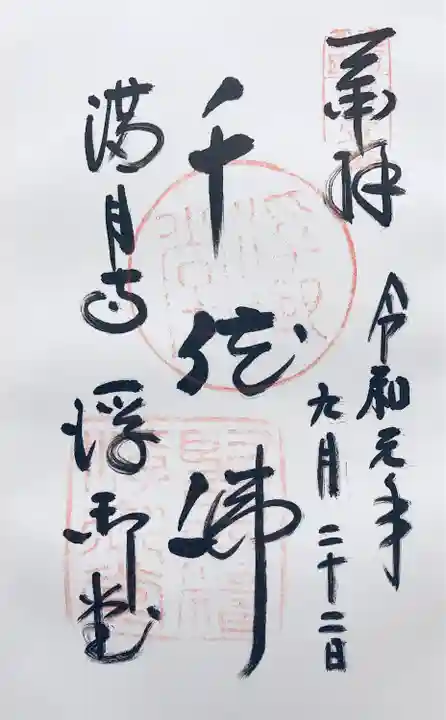 奉拝
令和元年
九月二十二日
千体佛
満月寺 浮御堂